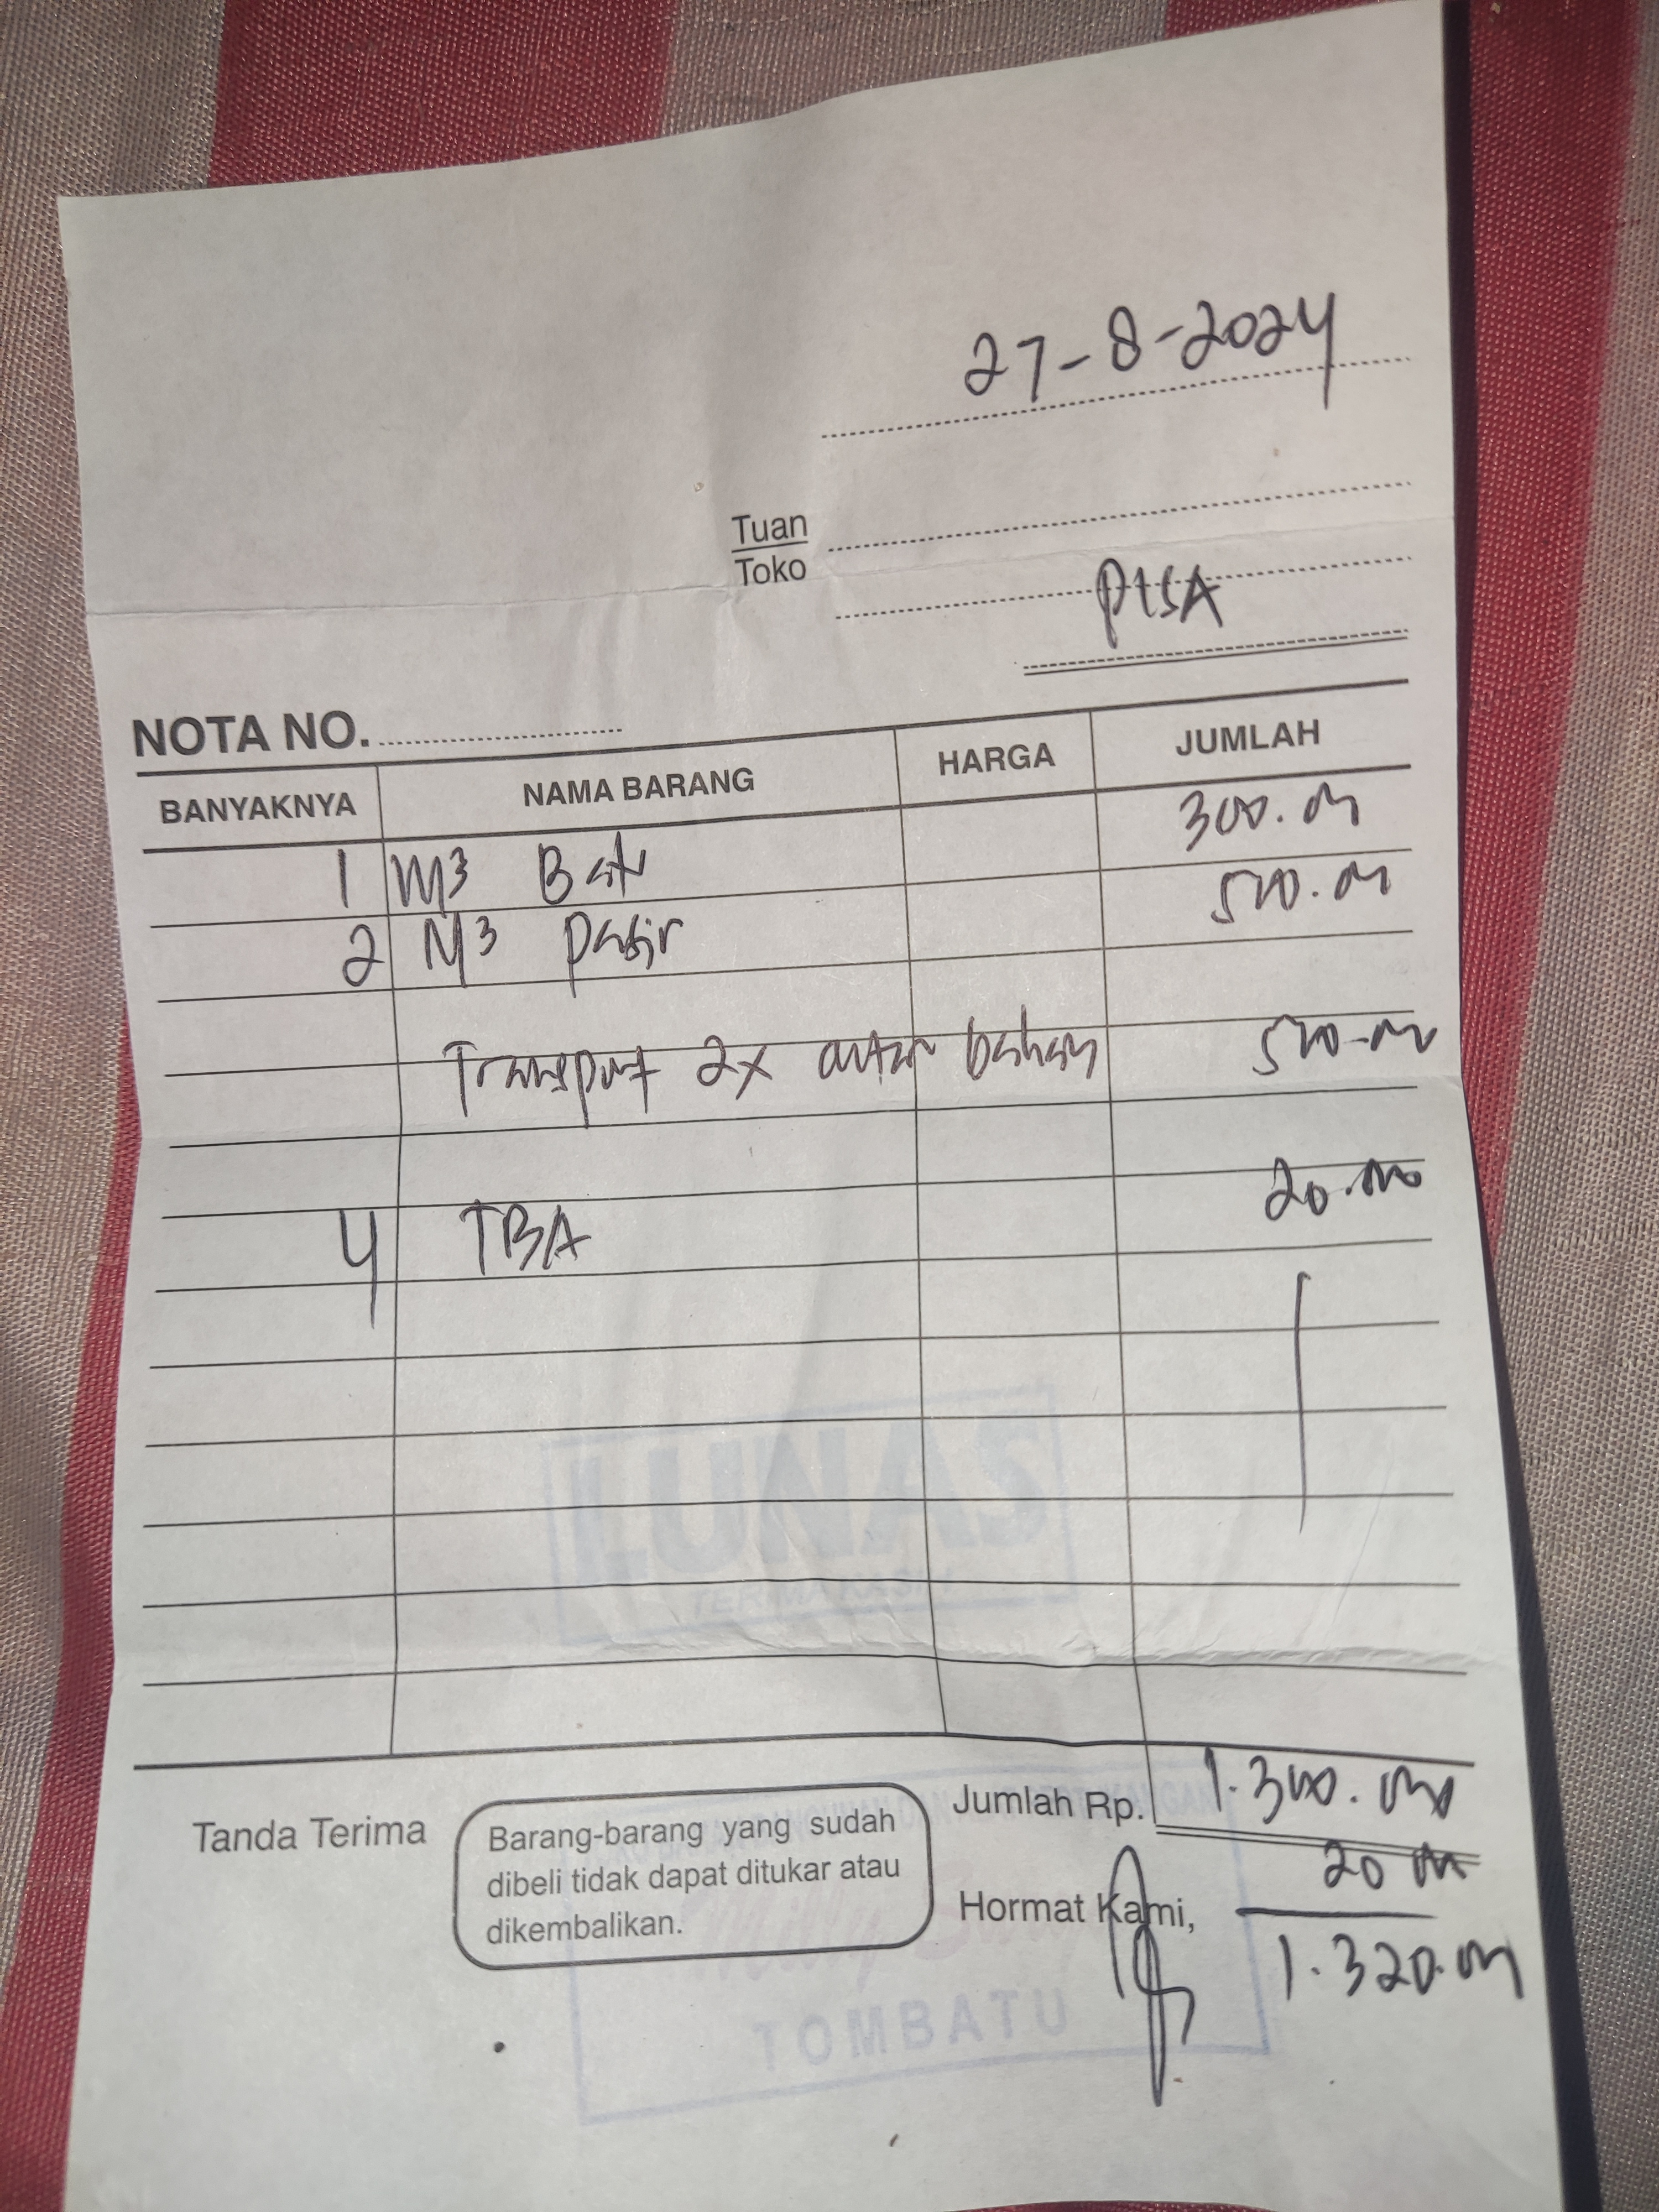 27-8-2024
Tuan
Toko
PISA
NOTA NO.
BANYAKNYA NAMA BARANG HARGA JUMLAH
1 M³ Batu 300.000
2 M³ Pasir 500.000
Transport 2x antar bahan 500.000
4 TBA 20.000
LUNAS
TERIMA KASIH
Tanda Terima
Barang-barang yang sudah
dibeli tidak dapat ditukar atau
dikembalikan.
Jumlah Rp. 1.300.000
20 000
Hormat Kami,
1.320.000
TOMBATU